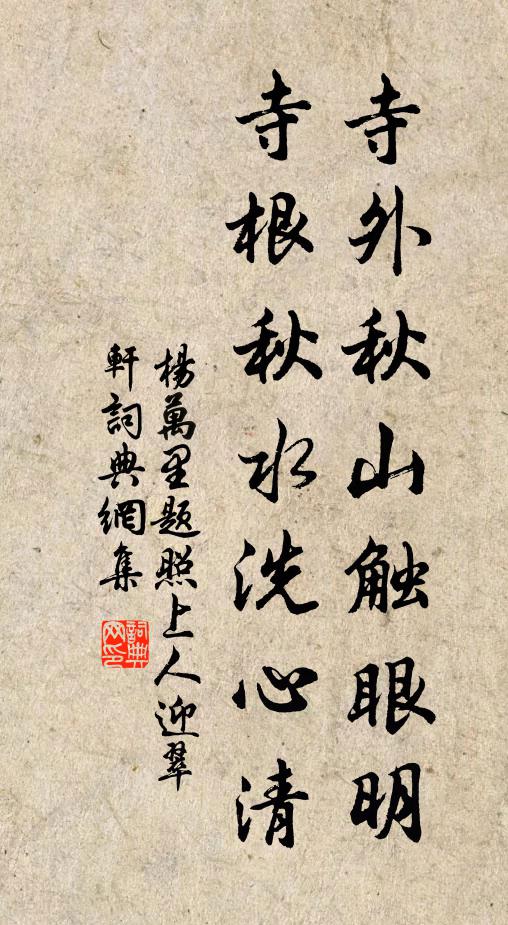 寺外秋山触眼明
寺根秋水洗心清
楊萬里题照上人迎翠
軒詞典網集
詞典
网印